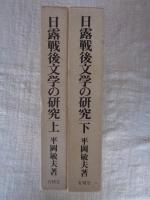 日露戰後文学の研究 上
平岡敏夫著
有精堂
日露戰後文学の研究 下
平岡敏夫著
有精堂